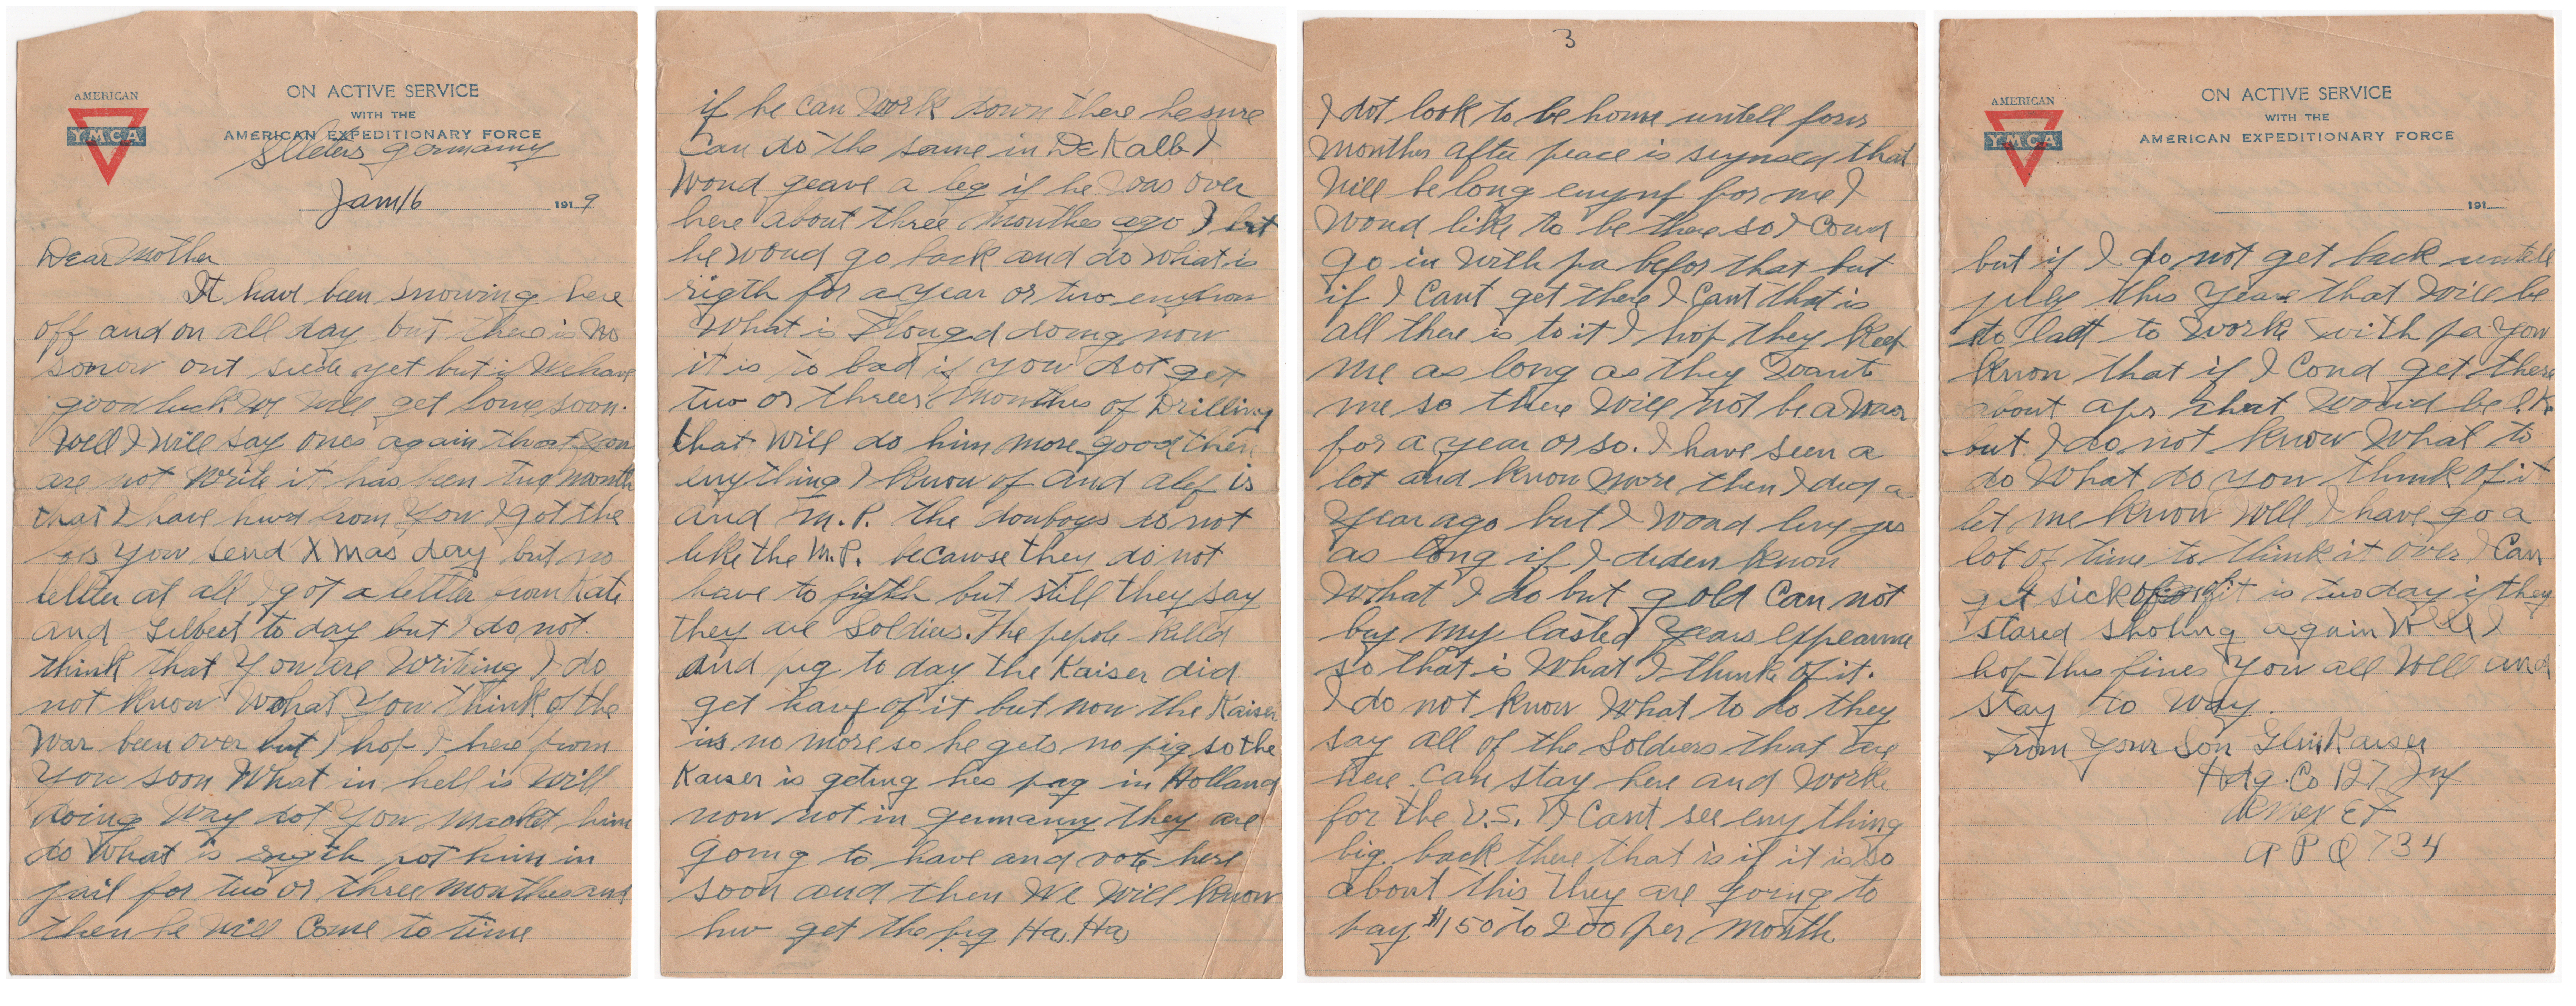 AMERICAN
YMCA
ON ACTIVE SERVICE
WITH THE
AMERICAN EXPEDITIONARY FORCE
Sellters Germanny
Jan 16 1919
Dear Mother
It have been snowing here
off and on all day but there is no
sonow out side yet but if We have
good luck We Will get some soon.
Well I Will say ones again that You
are not Write it has been two month
that I have hurd from You I got the
You send X Mas day but no
letter at all I got a letter from Kate
and Gilbert to day but I do not
think that You are Writing I do
not know What You think of the
War been over but I hop I here from
You soon What in hell is Will
doing Way dot You macket him
do What is rigth pot him in
jail for two or three monthes and
then he Will Come to time
if he can Work down there he sure
Can do the same in De Kalb I
Woud geave a leg if he Was over
here about three monthes ago I bet
he Woud go back and do What is
rigth for a year or two
What is doing now
it is to bad if you dot get
two or threes monthes of Drilling
that will do him more good then
enything I know of and alef is
and M.P. the douboys do not
like the M.P. becawse they do not
have to figth but still they say
they are Soldiers. The pepole killd
and pig to day the Kaiser did
get havf of it but now the Kaiser
is no more so he gets no pig so the
Kaiser is geting his pag in Holland
now not in germanny they are
going to have and vote here
soon and then We Will know
hw get the pig Ha, Ha,
3
I dot look to be home untell four
Monthes after peace is seynsed that
Will be long enynf for me I
Woud like to be there so I Coud
go in With pa befor that but
if I Cant get there I Cant that is
all there is to it I hop they keep
me as long as they Wants
me so there Will not be a Waor
for a year or so. I have seen a
lot and know more then I did a
Year ago but I Woud
as long if I diden know
What I do but gold Can not
buy my lasted Years
so that is What I think of it.
I do not know What to do they
say all of the Soldiers that are
here Can stay here and Worke
for the U.S. I Cant see enything
big back there that is if it is so
about this they are going to
bay $150 to 200 per month
AMERICAN
YMCA
ON ACTIVE SERVICE
WITH THE
AMERICAN EXPEDITIONARY FORCE
191
but if I do not get back untell
july this Year that Will be
to latt to Work with pa You
know that if I Coud get there
about apr that Would be O.K.
but I do not know What to
do What do you think of it
let me know Well I have go a
lot of time to think it over I Can
get sick of it is two day if they
stared shoting again Well I
hop this fines You all Well and
stay to Way.
From Your Son Glen Kaiser
Hdg. Co 127 Inf
Amer E F
A P O 734